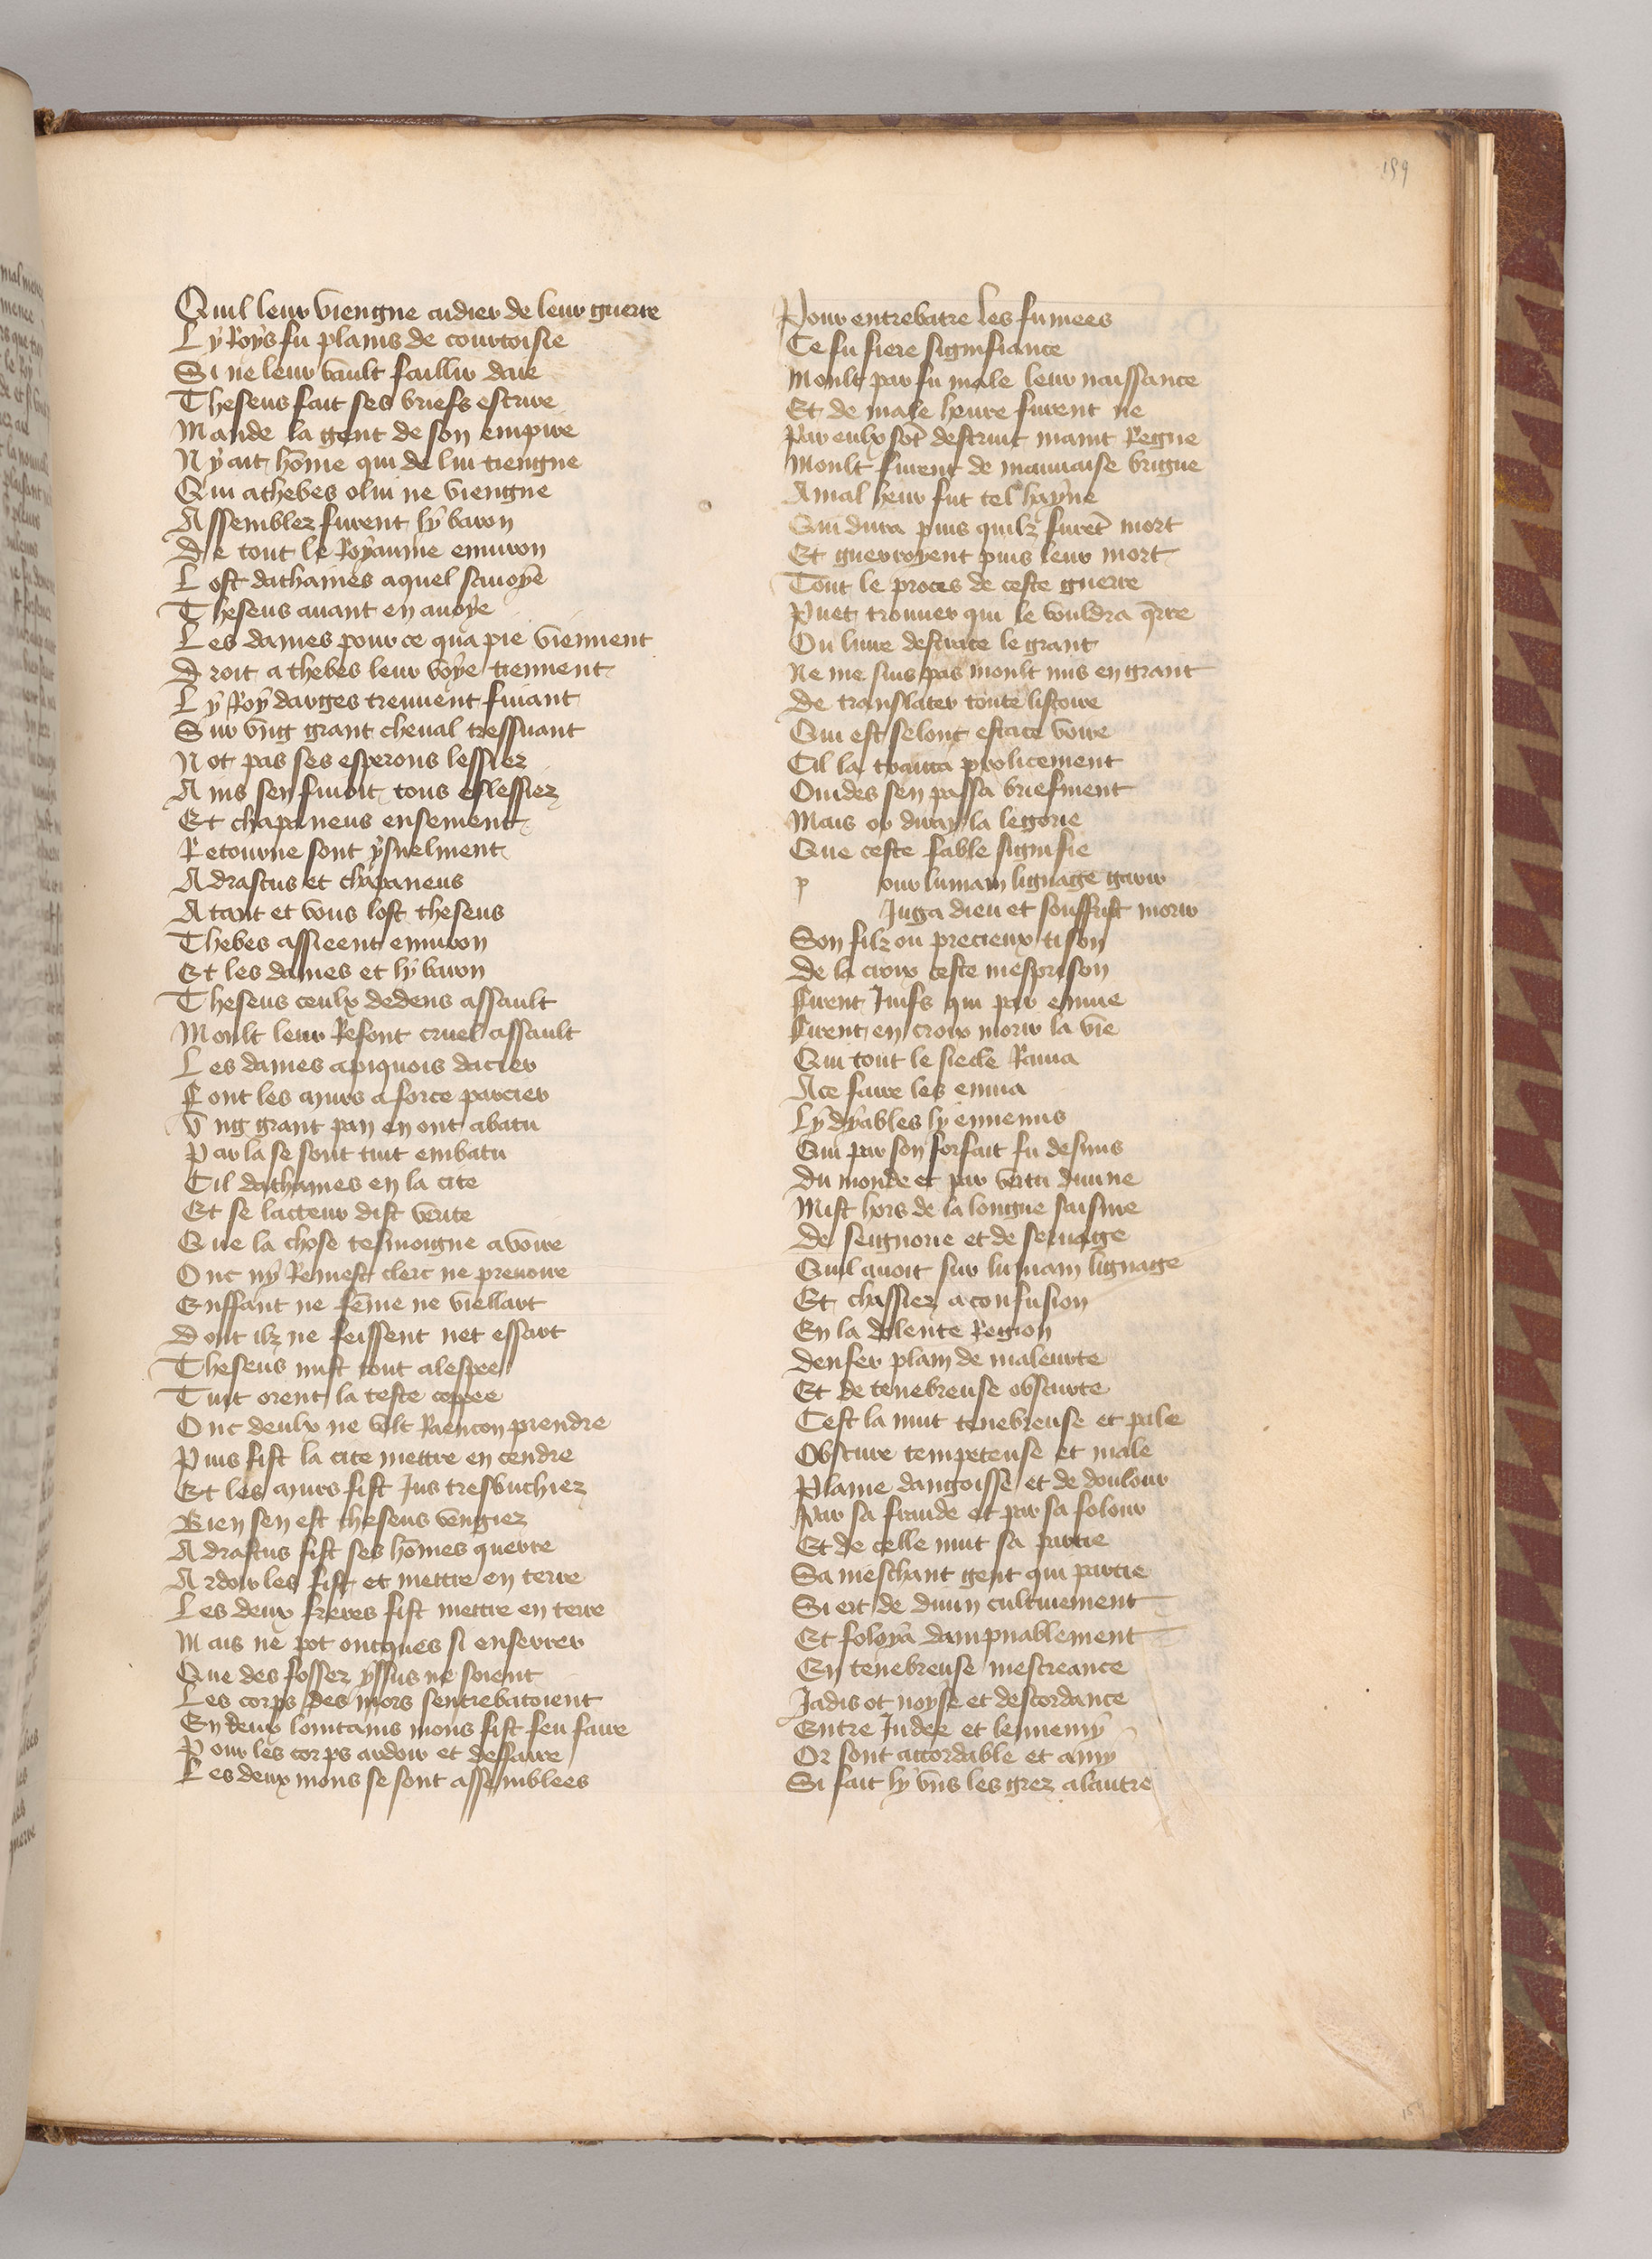 159
Quil leur viengne aidier de leur guerre
Ly Roys fu plains de courtoisie
Si ne leur vault faillir daie
Theseus fait ses briefs escrire
Mande la gent de son empire
Ny ait hōme qui de lui tiengne
Qui a thebes o lui ne viengne
Assemblez furent ly baron
De tout le Royaume environ
Lost dathaines aquel sauoye
Theseus auant en auoye
Les dames pour ce qua pie viennent
Droit a thebes leur voye tiennent
Ly Roy darges treuuent fuiant
Sur vng grant cheual tressuant
Not pas ses esperons lessiez
Ains sen fuioit tous eslessiez
Et chapaneus ensement
Retourne sont ysnelment
Adrastus et chapaneus
Atant et vous lost theseus
Thebes assieent enuiron
Et les dames et ly baron
Theseus ceulx dedens assault
Moult leur Refont cruel assault
Les dames a piquois dacier
Font les murs a force percier
Vng grant pan en ont abatu
Par la se sont tuit embatu
Cil dathaines en la cite
Et se lacteur dist verite
Que la chose tesmoigne a voire
Onc ny Remest clerc ne prouoire
Enffant ne fēme ne viellart
Dont ilz ne feissent net essart
Theseus mist tout a lespee
Tuit orent la teste coppee
Onc deulx ne volt Raencon prendre
Puis fist la cite mettre en cendre
Et les murs fist Jus tresbuchiez
Bien sen est theseus vengiez
Adrastus fist ses hōmes querre
Ardoir les fist et mettre en terre
Les deux freres fist mettre en terre
Mais ne pot oncques si enserrer
Que des fossez yssus ne soient
Les corps des mors sentrebatoient
En deux loingtains mons fist feu faire
Pour les corps ardoir et deffaire
Les deux mons se sont assemblees
Pour entrebatre les fumees
Ce fu fiere signifiance
Moult par fu male leur naissance
Et de male heure furent ne
Par eulx sōt destruit maint Regne
Moult furent de mauuaise brigue
A mal heur fut tel hayne
Qui dura puis quilz furēt mort
Et guerroyent puis leur mort
Tout le proces de ceste guerre
Puet trouuer qui le vouldra q̄rre
Ou liure destace le grant
Ne me suis pas moult mis en grant
De translater toute listoire
Qui est selont estace voire
Cil la traita prolicement
Ouides sen passa briefment
Mais or diray la legorie
Que ceste fable signifie
p our lumain lignage garir
Juga dieu et souffrist morir
Son filz ou precieux tison
De la croix ceste mesprison
Furent Juifs qui par enuie
Firent en croix morir la vie
Qui tout le siecle Rauia
A ce faire les enuia
Ly dyables ly ennemis
Qui par son forfait fu desmis
Du monde et par vertu diuine
Mist hors de la longue saisine
De seignorie et de seruage
Quil auoit sur lumain lignage
Et chassiez a confusion
En la dolente Region
Denfer plain de maleurte
Et de tenebreuse obscurte
Cest la nuit tenebreuse et pale
Obscure tempeteuse et male
Plaine dangoisse et de doulour
Par sa fraude et par sa folour
Et de celle nuit sa partie
Sa meschant gent qui partie
Si ert de diuin cultiuement
Et foloya dampnablement
En tenebreuse mescreance
Jadis ot noyse et descordance
Entre Judee et lennemy
Or sont accordable et amy
Si fait ly vns les grez a lautre